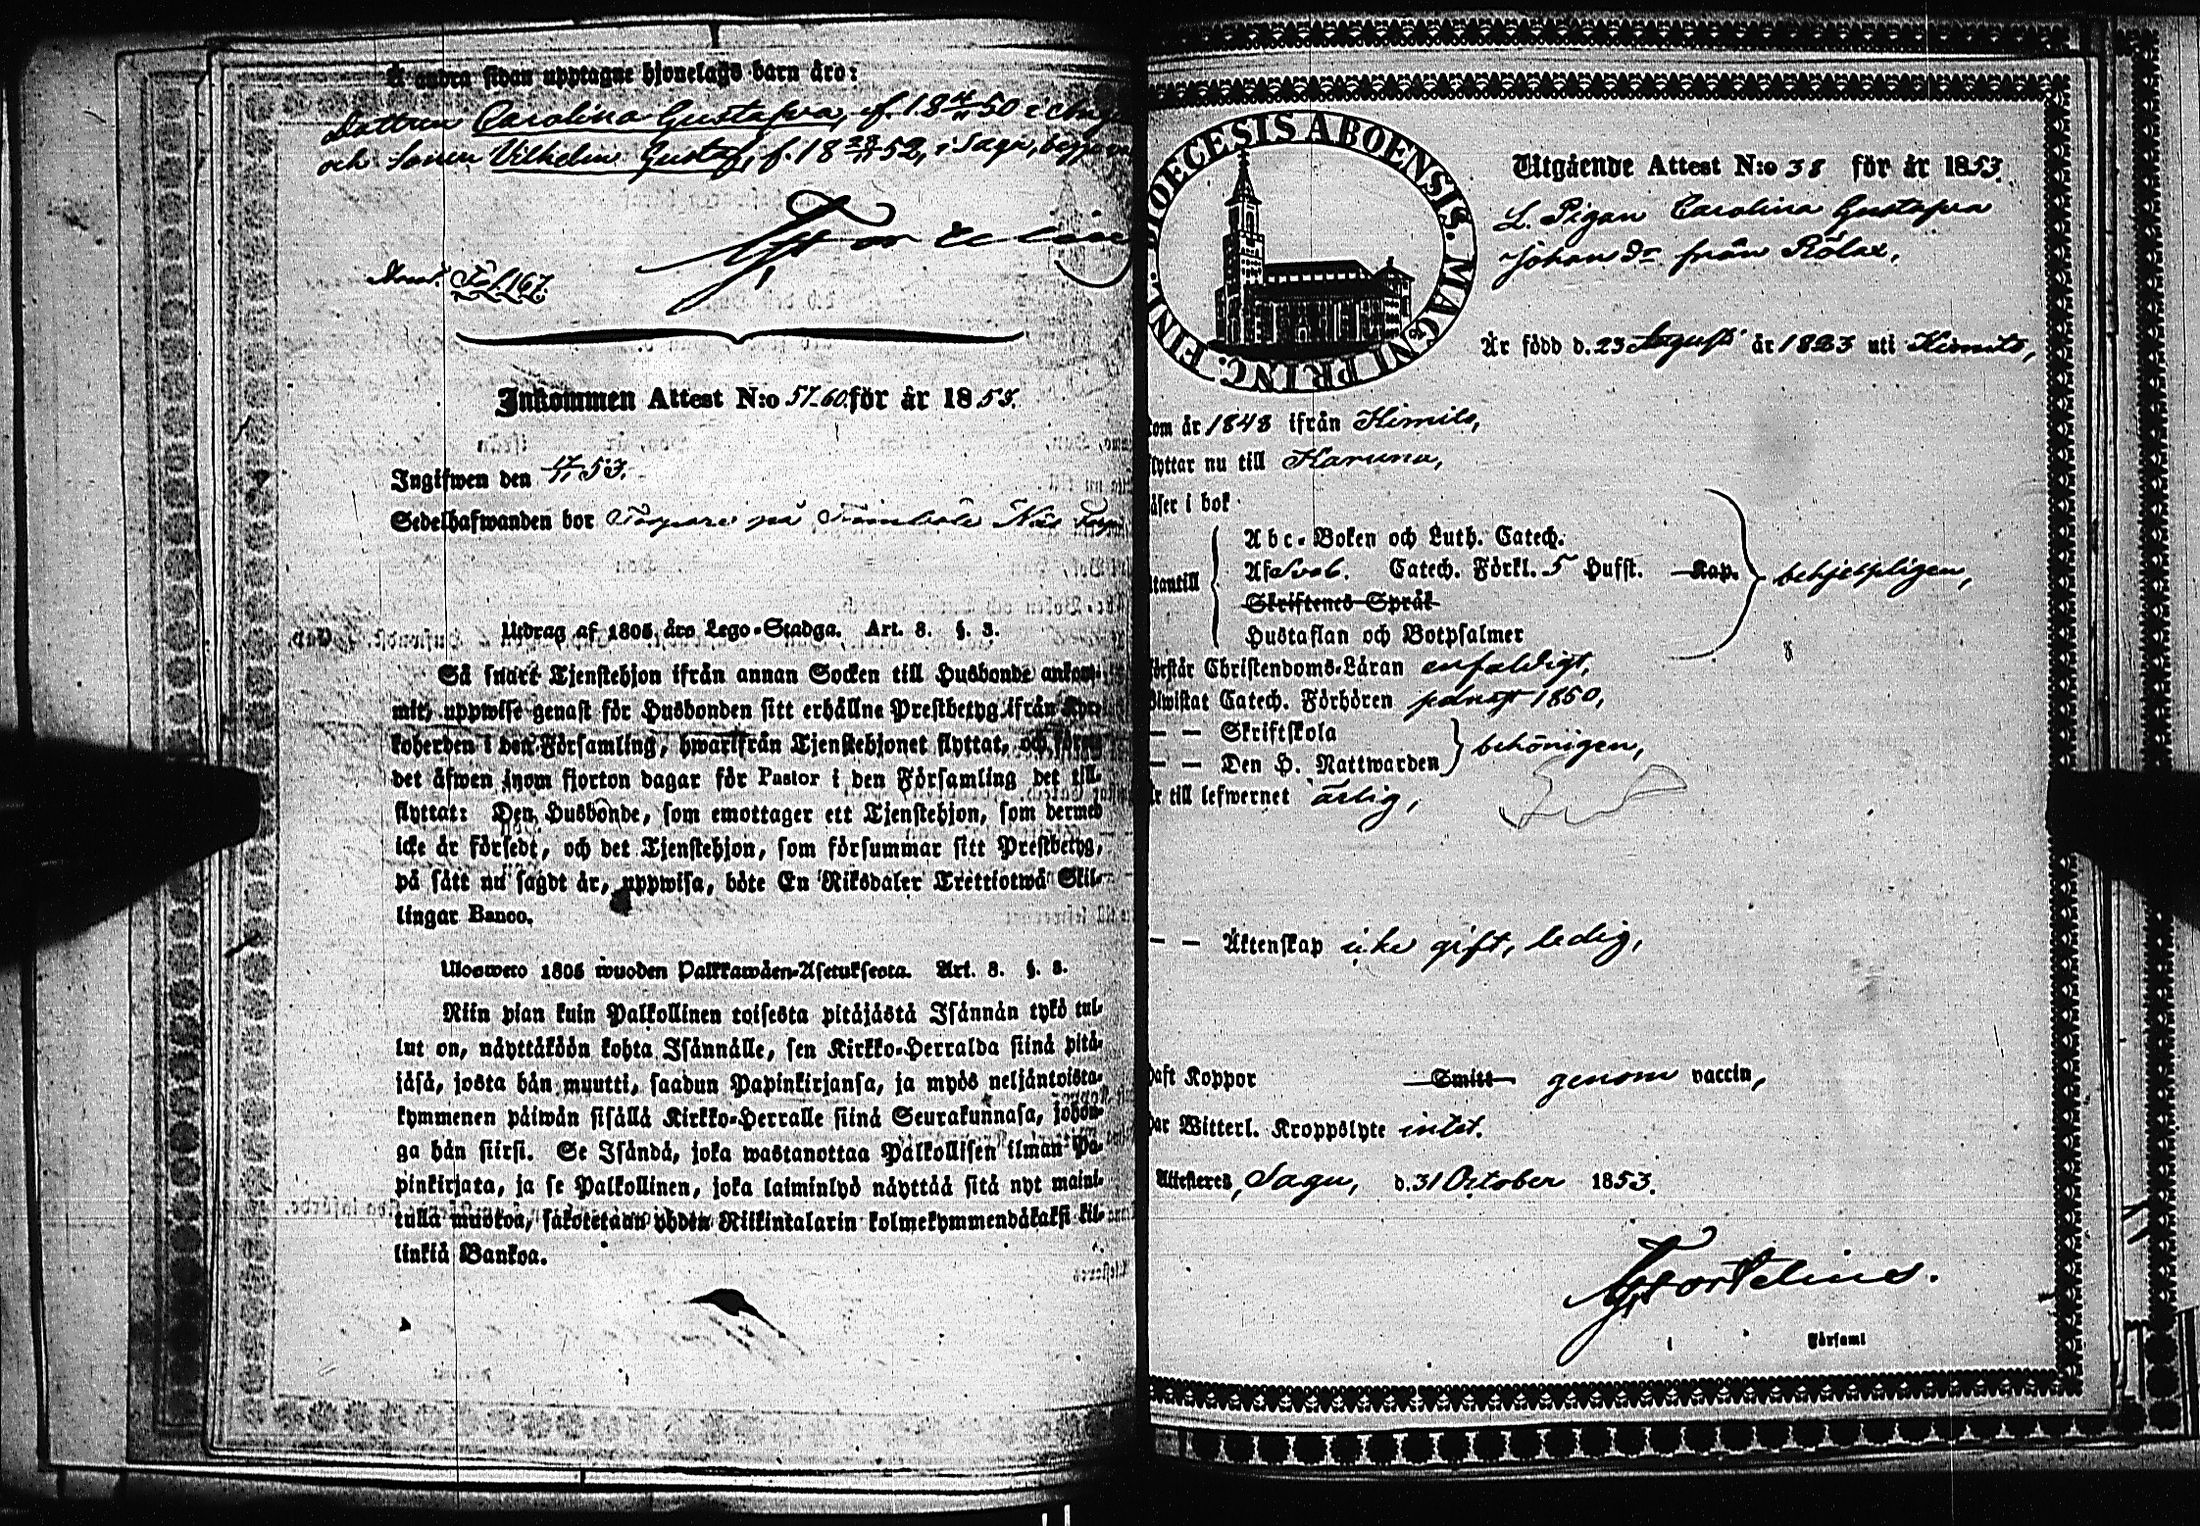 Å andra sidan upptagne hjonelags barn äro:
dottren Carolina Gustafva, f. 18 4/11 50 i
och sonen Vilhelm Gustaf, f. 18 52, i Sagu,
Fol. 167.
Inkommen Attest N:o 57-60 för år 1853.
Ingifwen den 17/11 53.
Sedelhafwanden bor Torpare på Näs
Utdrag af 1805 års Lego-Stadga. Art. 8. §. 3.
Så snart Tjenstehjon ifrån annan Socken till Husbonde ankom-
mit, uppwise genast för Husbonden sitt erhållne Prestbetyg ifrån Kyr-
koherden i den Församling, hwarifrån Tjenstehjonet flyttat, och förete
det äfwen inom fjorton dagar för Pastor i den Församling det till-
flyttat: Den Husbonde, som emottager ett Tjenstehjon, som dermed
icke är försedt, och det Tjenstehjon, som försummar sitt Prestbetyg,
på sätt nu sagdt är, uppwisa, böte En Riksdaler Trettiotwå Skil-
lingar Banco.
Uloswetο 1805 wuoden Palkkawäen-Asetuksesta. Art. 8. §. 3.
Niin pian kuin Palkollinen toisesta pitäjästä Isännän tykö tul-
lut on, näyttäköön kohta Isännälle, sen Kirkko-Herralda siinä pitä-
jäsä, josta hän muutti, saadun Papinkirjansa, ja myös neljäntoista-
kymmenen päiwän sisällä Kirkko-Herralle siinä Seurakunnasa, johon-
ga hän siirsi. Se Isändä, joka wastanottaa Palkollisen ilman Pa-
pinkirjata, ja se Palkollinen, joka laiminlyö näyttää sitä nyt maini-
tulla muotoa, sakotetaan yhden Riikintalarin kolmekymmendäkaksi kil-
linkiä Bankoa.
DIOECESIS ABOENSIS. MAGNI PRINC. FINL.
Utgående Attest N:o 38 för år 1853.
L. Pigan Carolina Gustafva
Johans dr från Rölax,
Är född d. 23 Augusti år 1823 uti Kimito,
kom år 1848 ifrån Kimito,
flyttar nu till Karuna,
läser i bok
utantill
Abc-Boken och Luth. Catech.
Af Sveb. Catech. Förkl. 5 Hufst. Kap.
behjelpligen,
Skriftenes Språk
Hustaflan och Botpsalmer
förstår Christendoms-Läran enfaldigt,
Biwistat Catech. Förhören 1850,
— — Skriftskola
— — Den H. Nattwarden
behörigen,
Är till lefwernet ärlig,
— — Äktenskap icke gift, ledig,
Haft Koppor Smitt genom vaccin,
Har Witterl. Kroppslyte intet.
Attesteres, Sagu, d. 31 October 1853.
Hortelius.
Församl